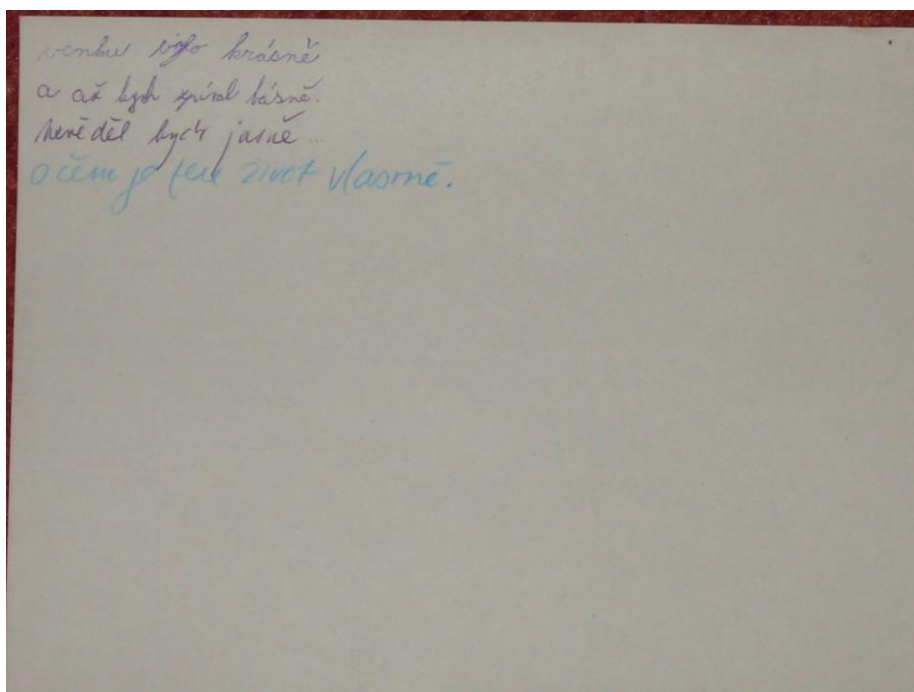 venku bylo krásně
a ač bych zpíval básně.
Nevěděl bych jasně...
o čem je ten život vlastně.